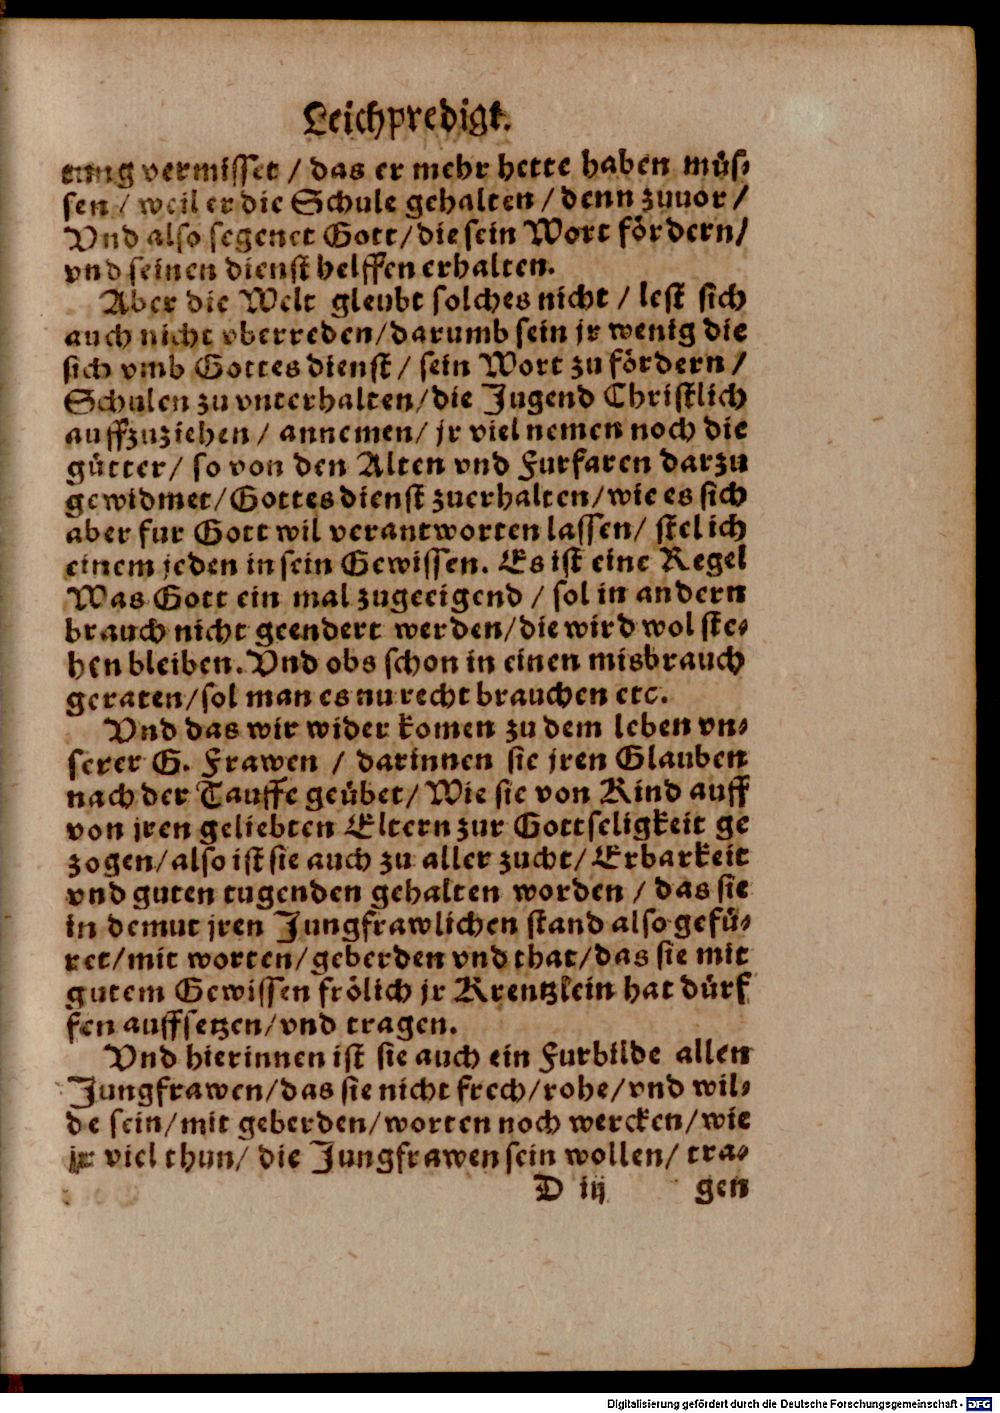 Leichpredigt.
vermisset / das er mehr hette haben müs-
sen / weil er die Schule gehalten / denn zuuor /
Vnd also segenet Gott / die sein Wort fördern /
vnd seinen dienst helffen erhalten.
Aber die Welt gleubt solches nicht / lest sich
auch nicht vberreden / darumb sein jr wenig die
sich vmb Gottes dienst / sein Wort zu fördern /
Schulen zu vnterhalten / die Jugend Christlich
auffzuziehen / annemen / jr viel nemen noch die
gütter / so von den Alten vnd Furfaren darzu
gewidmet / Gottes dienst zuerhalten / wie es sich
aber fur Gott wil verantworten lassen / stel ich
einem jeden in sein Gewissen. Es ist eine Regel
Was Gott ein mal zugeeigend / sol in andern
brauch nicht geendert werden / die wird wol ste-
hen bleiben. Vnd obs schon in einen misbrauch
geraten / sol man es nu recht brauchen etc.
Vnd das wir wider komen zu dem leben vn-
serer G. Frawen / darinnen sie jren Glauben
nach der Tauffe geübet / Wie sie von Kind auff
von jren geliebten Eltern zur Gottseligkeit ge
zogen / also ist sie auch zu aller zucht / Erbarkeit
vnd guten tugenden gehalten worden / das sie
in demut jren Jungfrawlichen stand also gefü-
ret / mit worten / geberden vnd that / das sie mit
gutem Gewissen frölich jr Krentzlein hat dürf
fen auffsetzen / vnd tragen.
Vnd hierinnen ist sie auch ein Furbilde allen
Jungfrawen / das sie nicht frech / rohe / vnd wil-
de sein / mit geberden / worten noch wercken / wie
jr viel thun / die Jungfrawen sein wollen / tra-
D iij gen
Digitalisierung gefördert durch die Deutsche Forschungsgemeinschaft - DFG